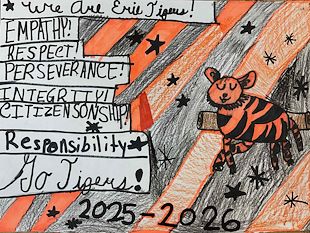 We Are Erie Tigers!
EMPATHY!
RESPECT!
PERSEVERANCE!
INTEGRITY!
CITIZENSONSHIP!
Responsibility
Go Tigers!
2025-2026